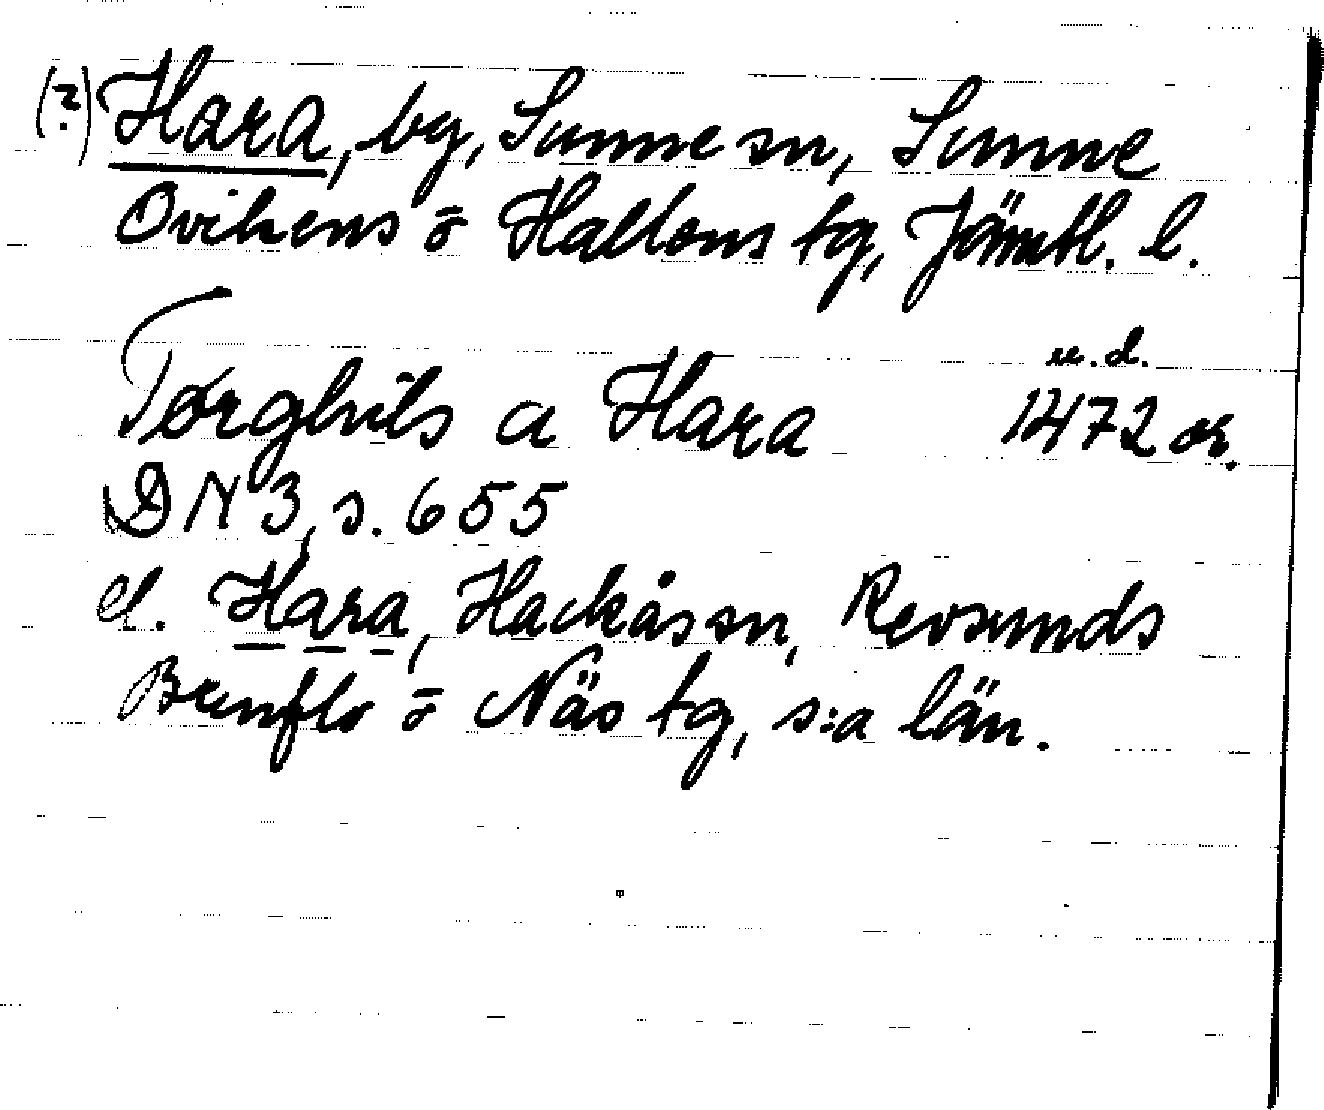 (?) Hara, by, Sunne sn, Sunne
Ovikens ō Hallens tg, Jämtl. l.
u. d.
Torghils a Hara 1472 or.
DN 3, s. 655
el. Hara, Hackås sn, Revsunds
Brunflo ō Näs tg, s:a län.